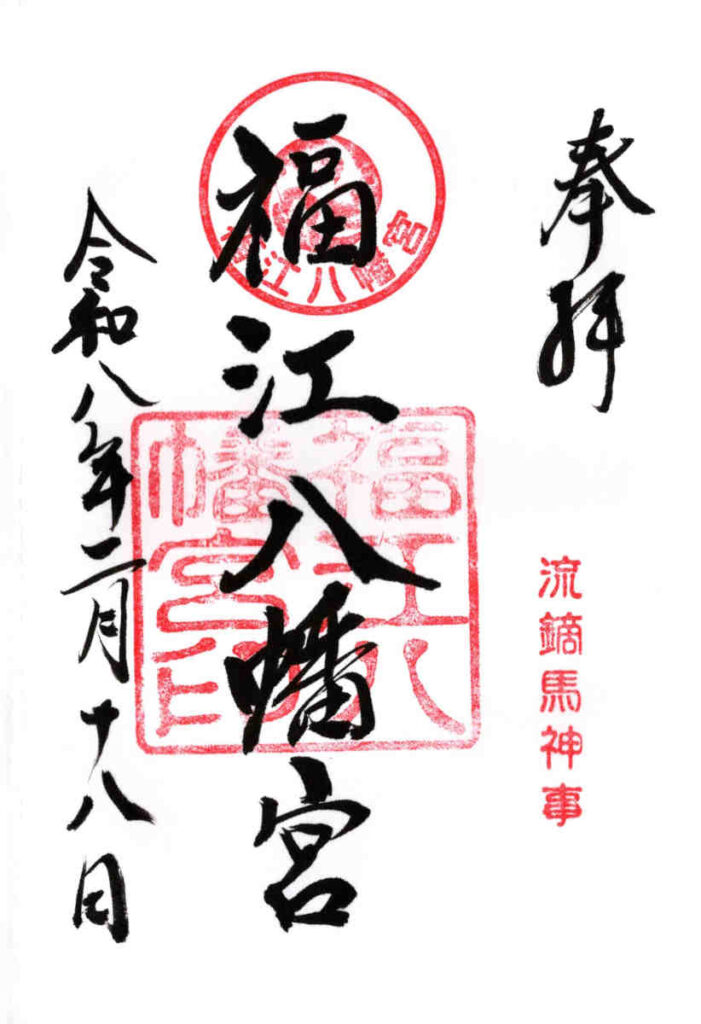 奉拝
流鏑馬神事
福江八幡宮
福江八幡宮
福江八幡宮印
令和八年二月十八日